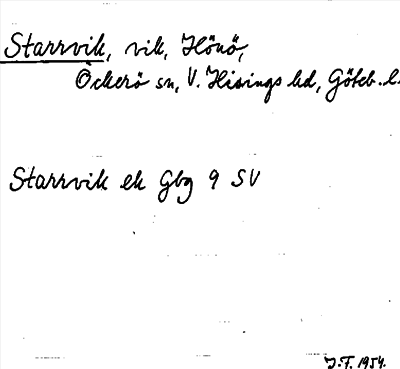 Starrvik, vik, Hönö,
Öckerö sn, V. Hisings hd, Göteb. l.
Starrvik ek Gbg 9 SV
J.F. 1954.